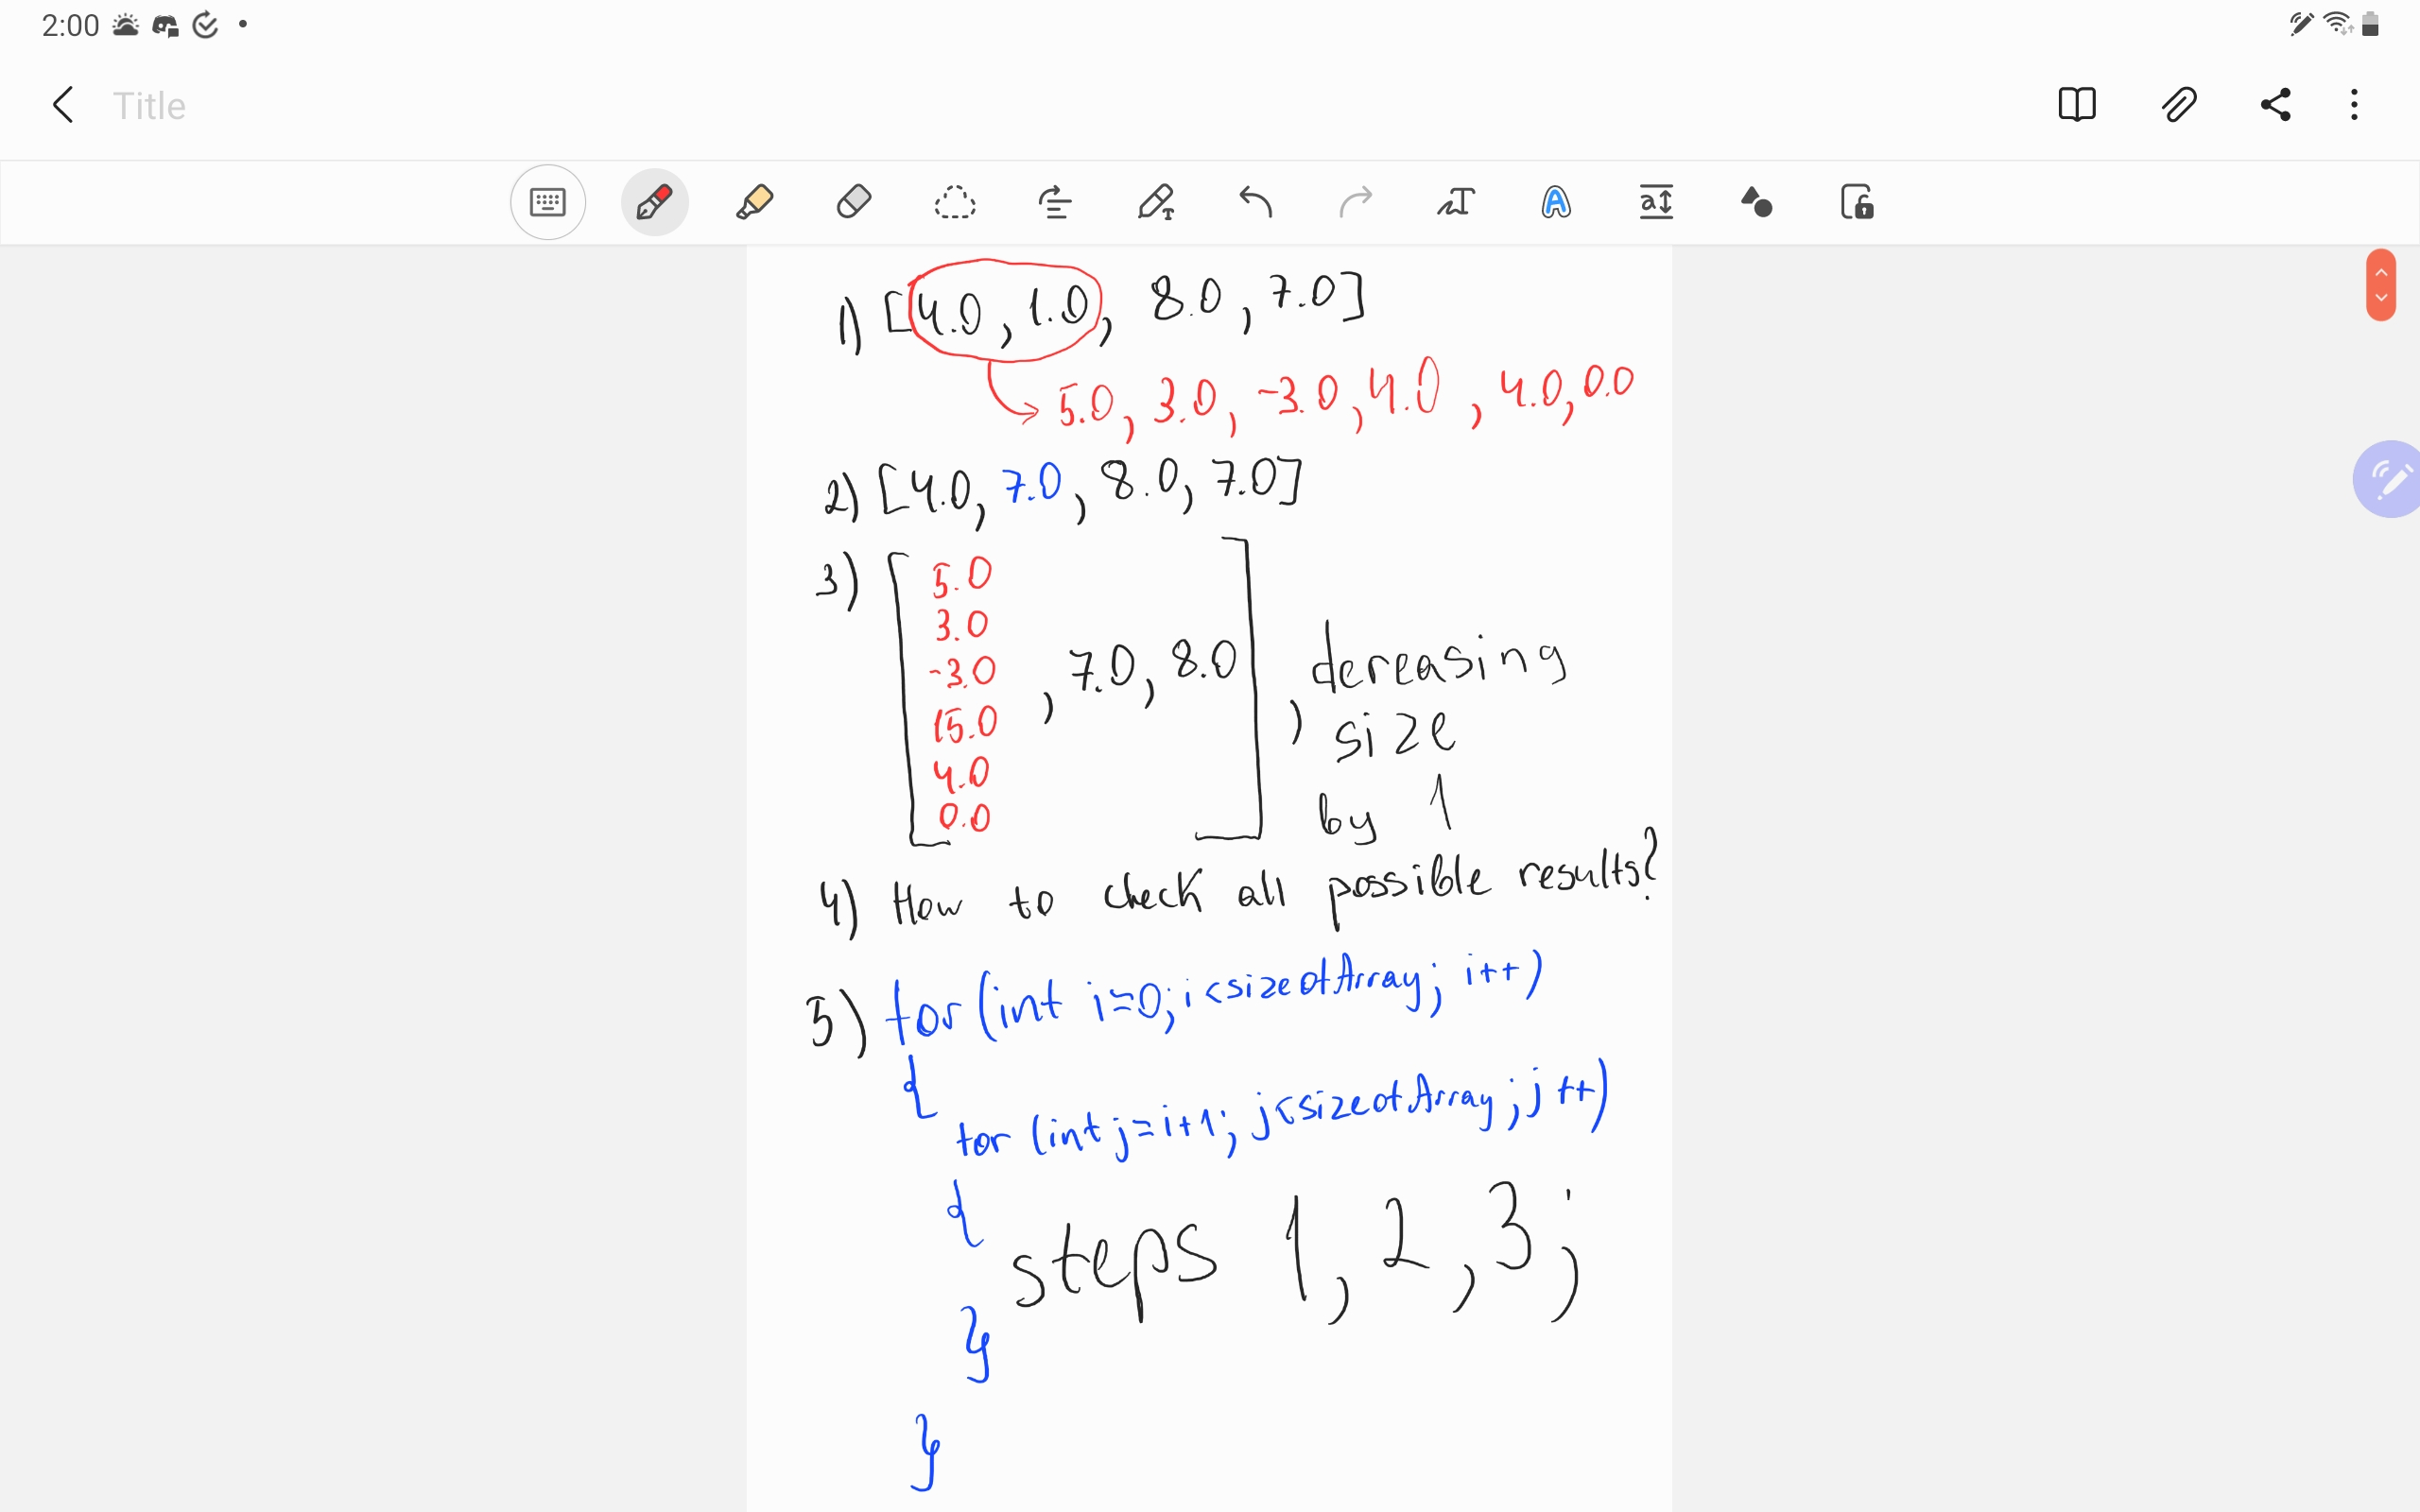 2:00
Title
1) [4.0, 1.0, 8.0, 7.0]
5.0, 3.0, -3.0, 4.0, 4.0, 0.0
2) [4.0, 7.0, 8.0, 7.0]
3) [
5.0
3.0
-3.0
15.0
4.0
0.0
, 7.0, 8.0]
, decreasing
size
by 1
4) How to check all possible results?
5) for (int i=0; i<sizeofArray; i++)
{
for (int j=i+1; j<sizeofArray; j++)
{
steps 1, 2, 3;
}
}